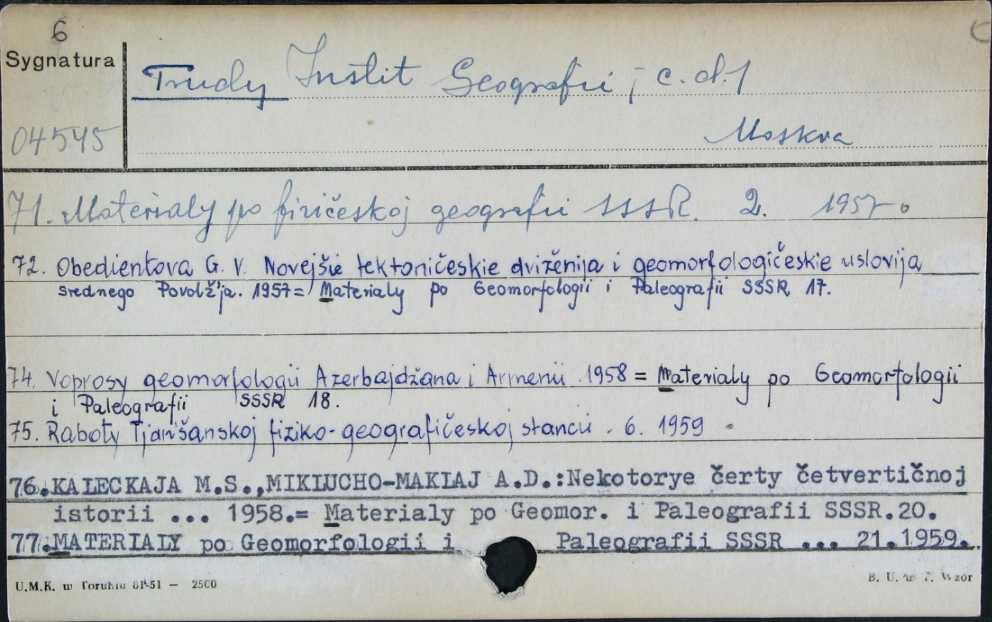 6
Sygnatura
Trudy Instit Geografii ; c.d.1
04545
Moskva
71. Materialy po fizičeskoj geografii SSSR. 2. 1957.
72. Obedientova G. V. Novejšie tektoničeskie dviženija i geomorfologičeskie uslovija
srednego Povolž'ja. 1957 = Materialy po Geomorfologii i Paleografii SSSR 17.
74. Voprosy geomorfologii Azerbajdžana i Armenii. 1958 = Materialy po Geomorfologii
i Paleografii SSSR 18.
75. Raboty Tjanšanskoj fiziko-geografičeskoj stancii. 6. 1959.
76. KALECKAJA M.S., MIKLUCHO-MAKLAJ A.D.: Nekotorye čerty četvertičnoj
istorii ... 1958.= Materialy po Geomor. i Paleografii SSSR.20.
77. MATERIALY po Geomorfologii i Paleografii SSSR ... 21.1959.
U.M.K. w Toruniu 81-51 — 2500
B. U. Wzór